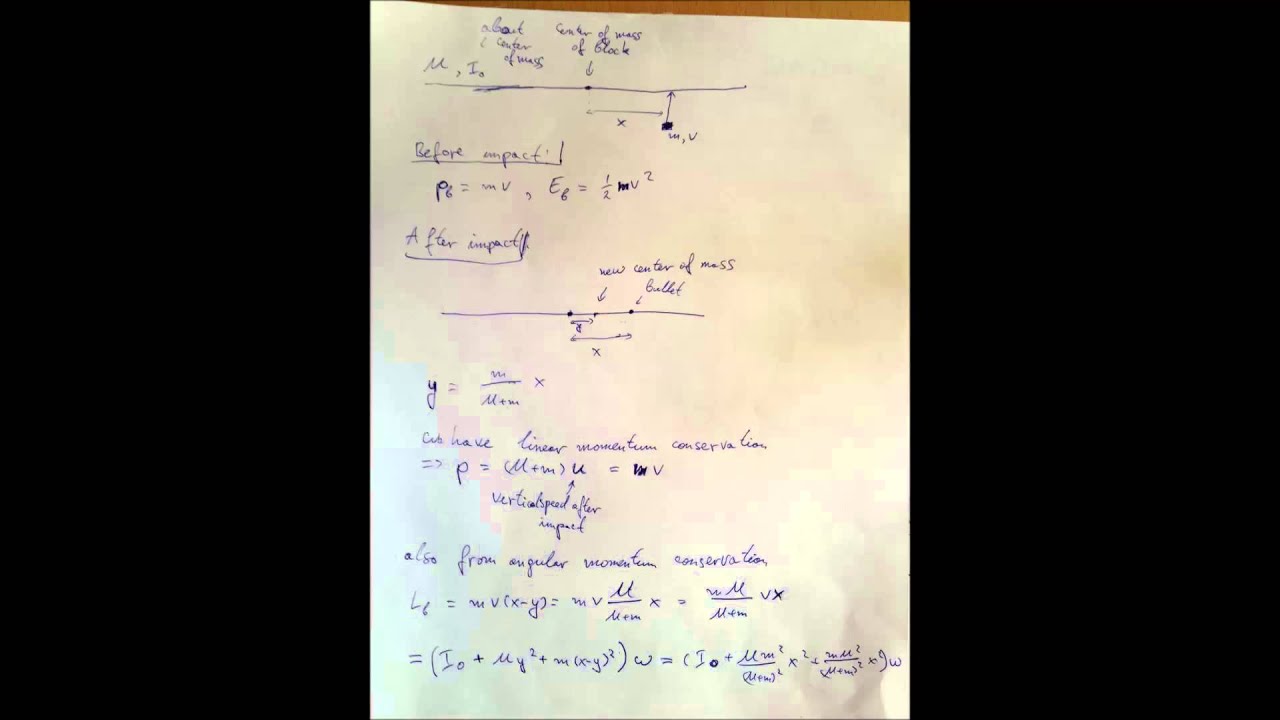 about center of mass
center of block
of mass
M, I₀
x
m, v
Before impact:
p_b = mv, E_b = ½mv²
After impact
new center of mass
bullet
y
x
y = m/(M+m) x
we have linear momentum conservation
=> p = (M+m)u = mv
vertical speed after
impact
also from angular momentum conservation
L_b = mv(x-y) = mv M/(M+m) x = mM/(M+m) vx
= (I₀ + My² + m(x-y)²)ω = (I₀ + Mm²/(M+m)² x² + mM²/(M+m)² x²)ω